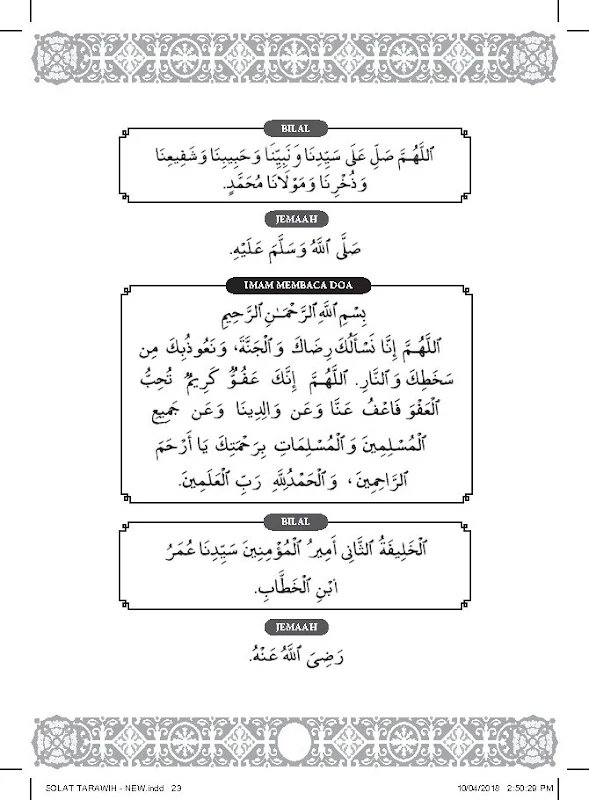 BILAL
اَللَّهُمَّ صَلِّ عَلَى سَيِّدِنَا وَنَبِيِّنَا وَحَبِيبِنَا وَشَفِيعِنَا
وَذُخْرِنَا وَمَوْلَانَا مُحَمَّدٍ.
JEMAAH
صَلَّى ٱللَّهُ وَسَلَّمَ عَلَيْهِ.
IMAM MEMBACA DOA
بِسْمِ ٱللَّهِ ٱلرَّحْمَـٰنِ ٱلرَّحِيمِ
اَللَّهُمَّ إِنَّا نَسْأَلُكَ رِضَاكَ وَٱلْجَنَّةَ، وَنَعُوذُبِكَ مِن
سَخَطِكَ وَٱلنَّارِ. ٱللَّهُمَّ إِنَّكَ عَفُوٌّ كَرِيمٌ تُحِبُّ
ٱلْعَفْوَ فَاعْفُ عَنَّا وَعَن وَالِدِينَا وَعَن جَمِيعِ
ٱلْمُسْلِمِينَ وَٱلْمُسْلِمَاتِ بِرَحْمَتِكَ يَا أَرْحَمَ
ٱلرَّاحِمِينَ، وَٱلْحَمْدُلِلَّهِ رَبِّ ٱلْعَلَمِينَ.
BILAL
ٱلْخَلِيفَةُ ٱلثَّانِى أَمِيرُ ٱلْمُؤْمِنِينَ سَيِّدِنَا عُمَرُ
ابْنِ ٱلْخَطَّابِ.
JEMAAH
رَضِىَ ٱللَّهُ عَنْهُ.
SOLAT TARAWIH - NEW.indd 23 10/04/2018 2:50:29 PM